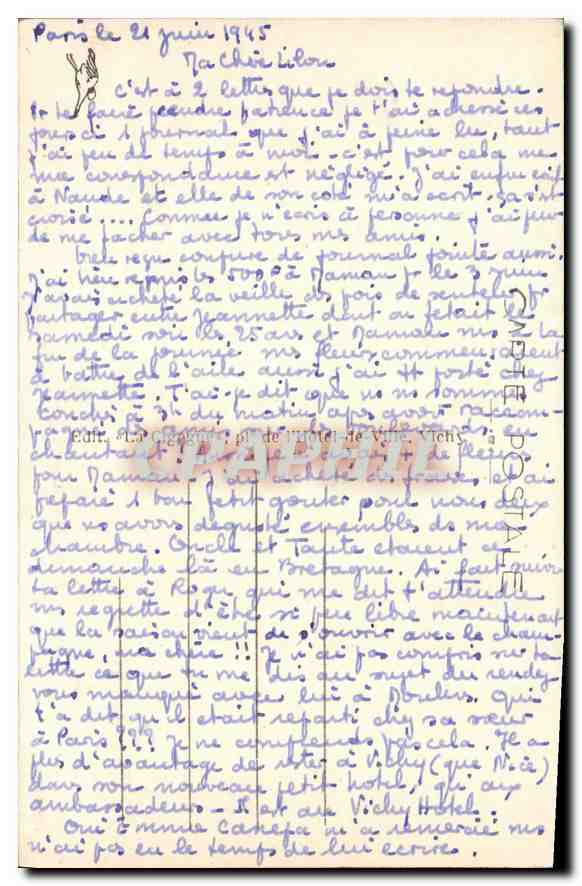 Paris le 21 juin 1945
Ma chère Lilou
C'est à 2 lettres que je dois te repondre.
Pr te faire prendre patience je t'ai adressé ces
jours ci 1 journal que j'ai à peine lu, tant
j'ai peu de temps à moi - c'est pour cela que ma
correspondance est négligé. J'ai enfin écrit
à Naude et elle de son coté m'a écrit. ça s'est
croisé .... Comme je n'ecris à personne j'ai peur
de me facher avec tous mes amis.
Bien reçu coupure de journal jointe aussi.
J'ai bien remis les 5000 à Maman pr le 3 juin
J'avais acheté la veille des pois de senteur pr
partager entre Jeannette dont on fetait le
samedi soir les 25 ans et Maman ms à la
fin de la journée mes fleurs commencaient
à battre de l'aile aussi j'ai tt porté chez
Jeannette. T'ai-je dit que ns ns sommes
couchés à 3h du matin apres avoir raccom-
pagné des amis sur les boulevards en
chantant
pour Maman j'ai acheté des fraises et ai
préparé 1 bon petit gouter pour nous deux
que ns avons dégusté ensembles ds ma
chambre. Oncle et Tante etaient ce
dimanche là en Bretagne. Ai fait suivre
ta lettre à Roger qui me dit t'attendre
ms regrette d'être si peu libre maintenant
que la saison vient de s'ouvrir avec le cham-
pagne, ma chère !! Je n'ai pas compris sur ta
lettre ce que tu me dis au sujet du rendez
vous manqué avec lui à Moulins. Qui
t'a dit qu'il etait reparti chez sa sœur
à Paris ??? Je ne comprends pas cela. Il a
plus d'avantage de rester à Vichy (que Nice)
dans son nouveau petit hotel, qu'aux
ambassadeurs - Il est au Vichy Hotel.
Oui Emmie Canefa m'a remercié ms
n'ai pas eu le temps de lui ecrire.
Edit. "La Cigogne", pl. de l'Hôtel-de-Ville, Vichy
CARTE POSTALE
CPAPHIL